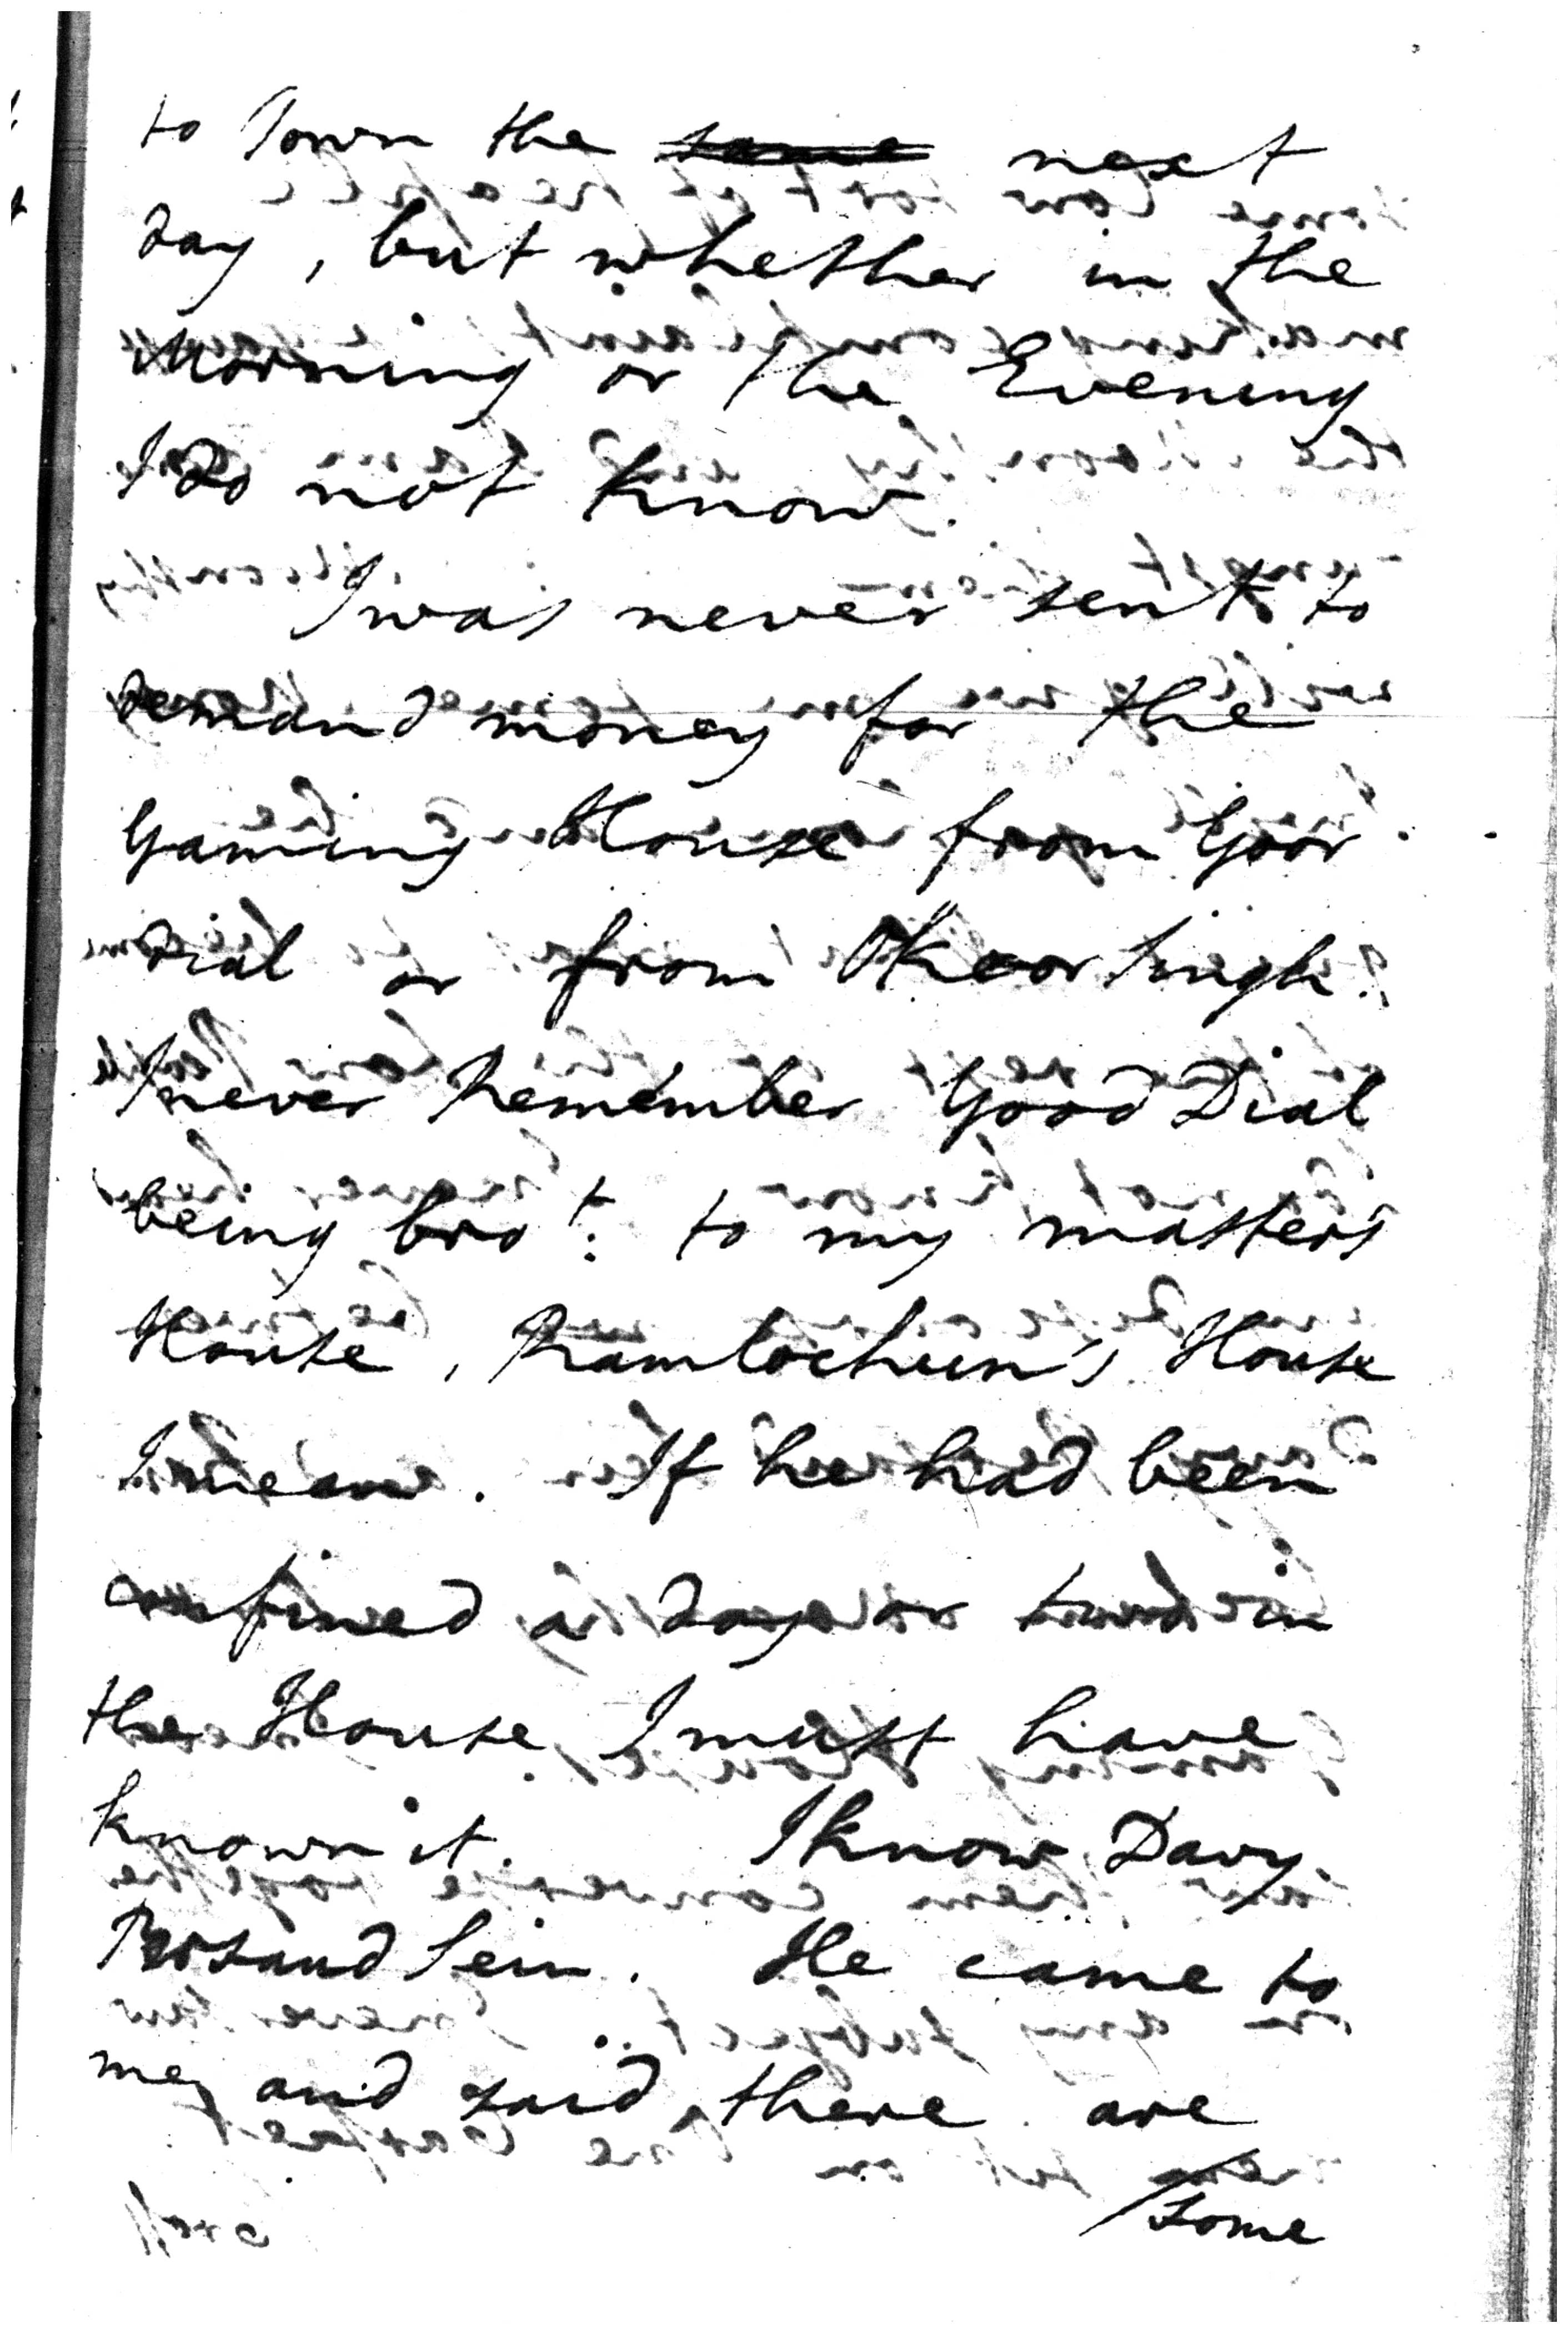 to Town the same next
day, but whether in the
Morning or the Evening
I do not know.
I was never sent to
demand money for the
Gaming House from Goor
Dial or from Kheor Singh.
I never Remember Good Dial
being bro:t to my masters
House, Ramlochun's House
I mean. If he had been
confined a day or two in
the House I must have
known it. I know Davy
Persaud Sein. He came to
me, and said there are
/some